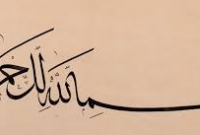 سم الله الرحم